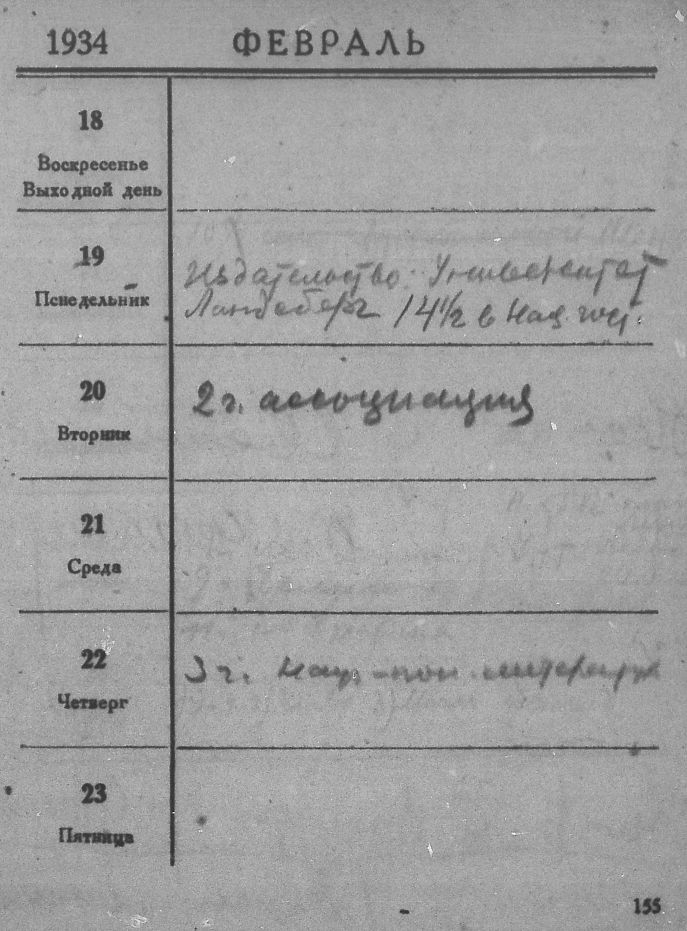 1934 ФЕВРАЛЬ
18
Воскресенье
Выходной день
19
Понедельник
Издательство. Университет
Ландсберг 14 1/2 в
20
Вторник
2 ч. ассоциация
21
Среда
22
Четверг
3 ч. науч-поп.
23
Пятница
155